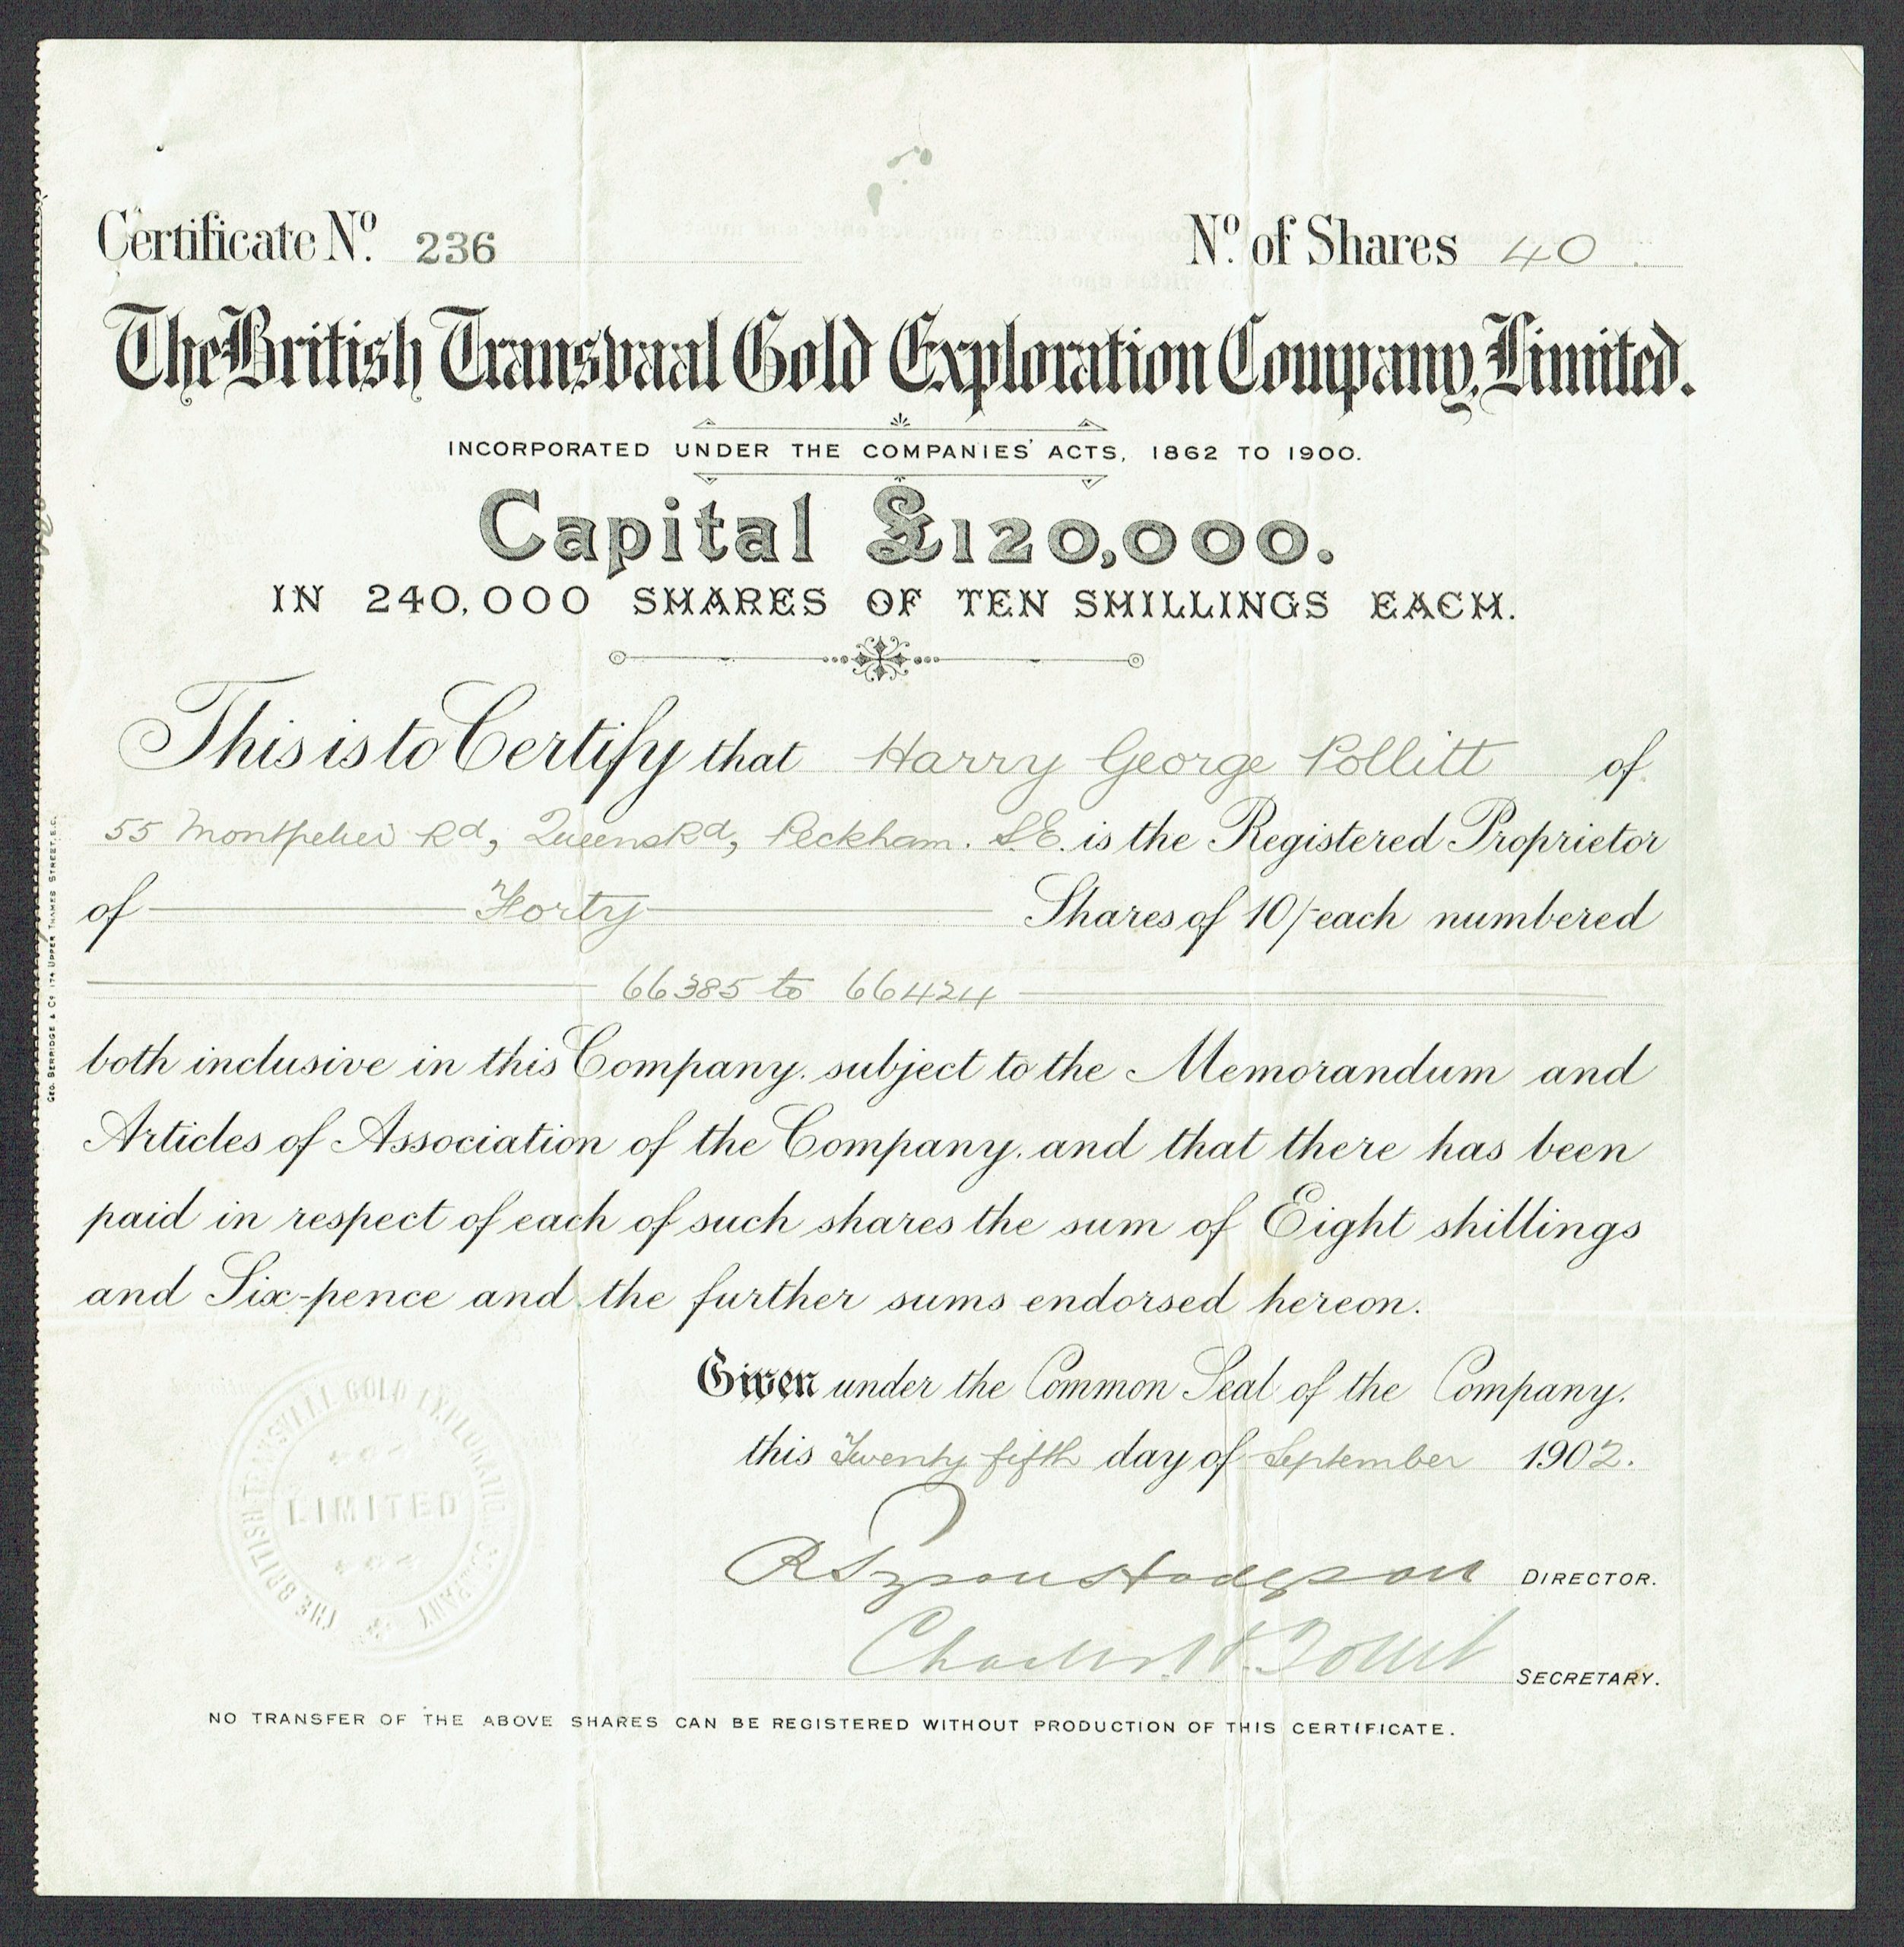 Certificate No. 236
No. of Shares 40
The British Transvaal Gold Exploration Company, Limited.
INCORPORATED UNDER THE COMPANIES' ACTS, 1862 TO 1900.
Capital £120,000.
IN 240,000 SHARES OF TEN SHILLINGS EACH.
This is to Certify that Harry George Pollitt of
55 Montpelier Rd, Queens Rd, Peckham. S.E. is the Registered Proprietor
of Forty Shares of 10/- each numbered
66385 to 66424
both inclusive in this Company, subject to the Memorandum and
Articles of Association of the Company, and that there has been
paid in respect of each of such shares the sum of Eight shillings
and Six-pence and the further sums endorsed hereon.
Given under the Common Seal of the Company,
this Twenty fifth day of September 1902.
DIRECTOR.
Charles H.
SECRETARY.
NO TRANSFER OF THE ABOVE SHARES CAN BE REGISTERED WITHOUT PRODUCTION OF THIS CERTIFICATE.
THE BRITISH TRANSVAAL GOLD EXPLORATION COMPANY
LIMITED
GEO. BERRIDGE & Co. 174 UPPER THAMES STREET, E.C.